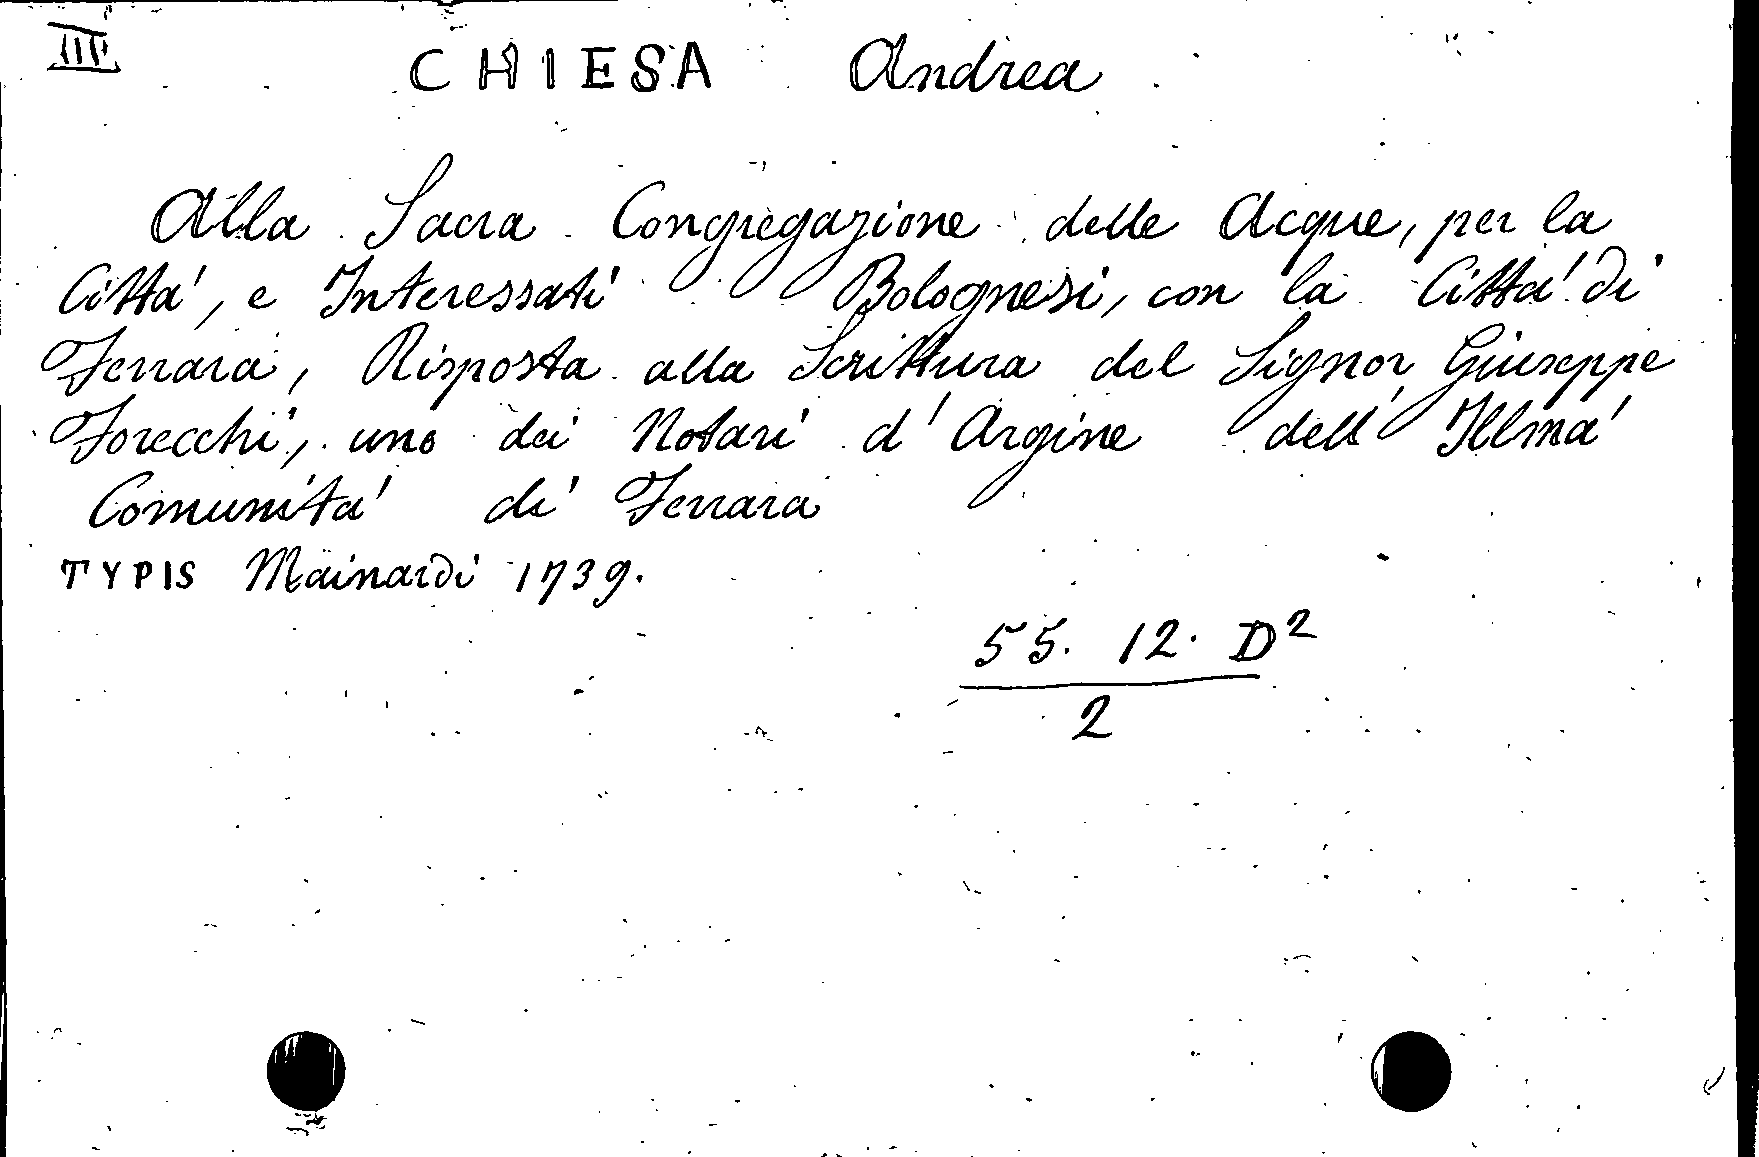 III
CHIESA Andrea
Alla Sacra Congregazione delle Acque, per la
Città, e Interessati Bolognesi, con la Città di
Ferrara, Risposta alla Scrittura del Signor Giuseppe
Forecchi, uno dei Notari d'Argine dell' Illma
Comunità di Ferrara
TYPIS Mainardi 1739.
55. 12. D²
2